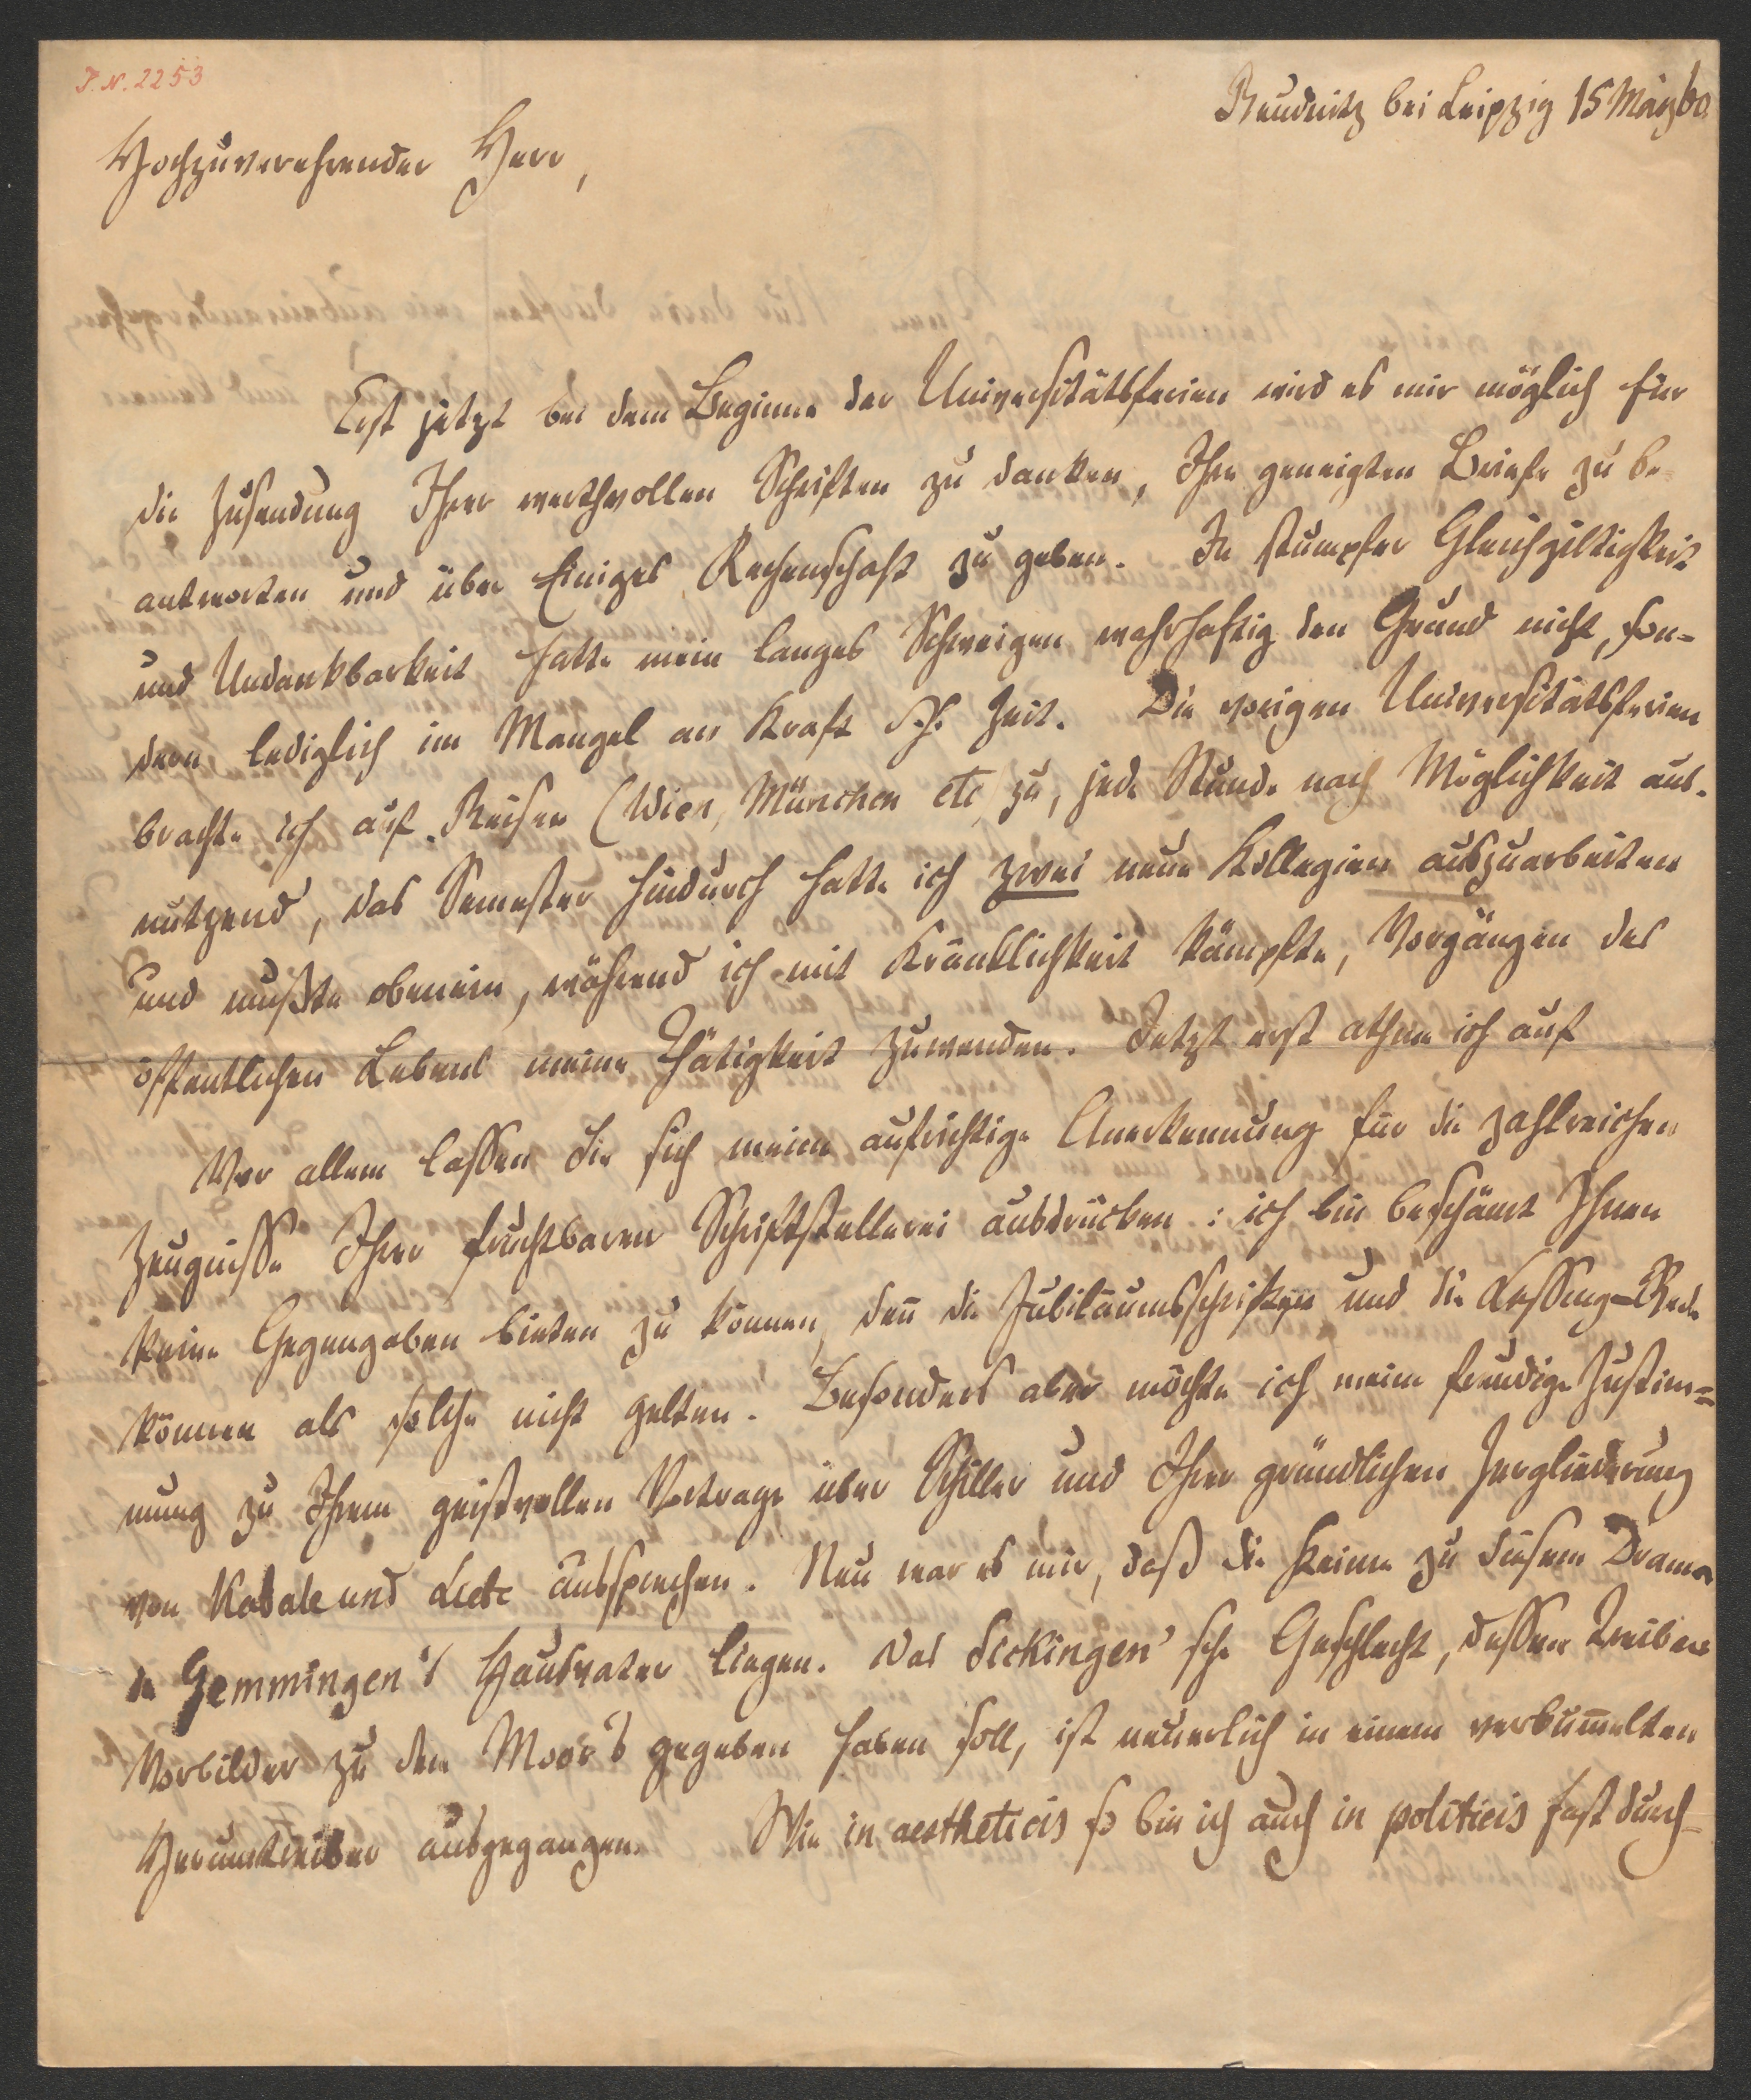 P. N. 2253
Reudnitz bei Leipzig 15 März 60
Hochzuverehrender Herr,
Erst jetzt bei dem Beginne der Universitätsferien wird es mir möglich für
die Zusendung Ihrer werthvollen Schriften zu danken, Ihre geneigten Briefe zu be-
antworten und über Einiges Rechenschaft zu geben. In stumpfer Gleichgiltigkeit
und Undankbarkeit hatte mein langes Schweigen wahrhaftig den Grund nicht, son=
dern lediglich im Mangel an Kraft d. h. Zeit. Die vorigen Universitätsferien
brachte ich auf Reisen (Wien, München etc zu, jede Stunde nach Möglichkeit aus-
nutzend, das Semester hindurch hatte ich zwei neue Kollegien auszuarbeiten
und mußte obenein, während ich mit Kränklichkeit kämpfte, Vorgängen des
öffentlichen Lebens meine Thätigkeit zuwenden. Jetzt erst athme ich auf
Vor allem lassen Sie sich meine aufrichtige Anerkennung für die zahlreichen
Zeugnisse Ihrer fruchtbaren Schriftstellerei ausdrücken: ich bin beschämt Ihnen
keine Gegengaben bieten zu können, deñ die Jubiläumsschriften und die Lessing=Rede
können als solche nicht gelten. Besonders aber möchte ich meine freudige Zustim=
mung zu Ihrem geistvollen Vortrage über Schiller und Ihrer gründlichen Zergliederung
von Kabale und Liebe aussprechen. Neu war es mir, daß die Keime zu diesem Drama
in Gemmingen's Hausvater liegen. Das Sickingen'sche Geschlecht, dessen Treiben
Vorbilder zu den Moor's gegeben haben soll, ist neuerlich in einem verbum̃elten
Herumtreiber ausgegangen. Wie in aestheticis so bin ich auch in politicis fast durch-